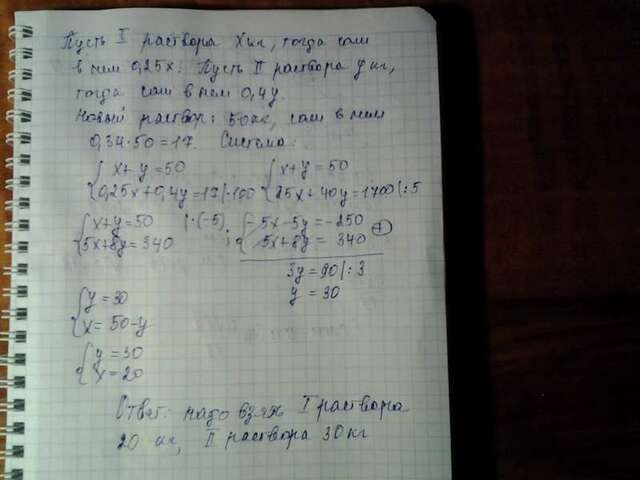 Пусть I раствора x кг, тогда соли
в нем 0,25x. Пусть II раствора y кг,
тогда соли в нем 0,4y.
Новый раствор: 50 кг, соли в нем
0,34·50=17. Система:
{ x+y=50 { x+y=50
0,25x+0,4y=17 |·100 25x+40y=1700 |:5
{ x+y=50 |·(-5) ; { -5x-5y=-250
5x+8y=340 5x+8y=340 (+)
3y=90 |:3
{ y=30 y=30
x=50-y
{ y=30
x=20
Ответ: надо взять I раствора
20 кг, II раствора 30 кг